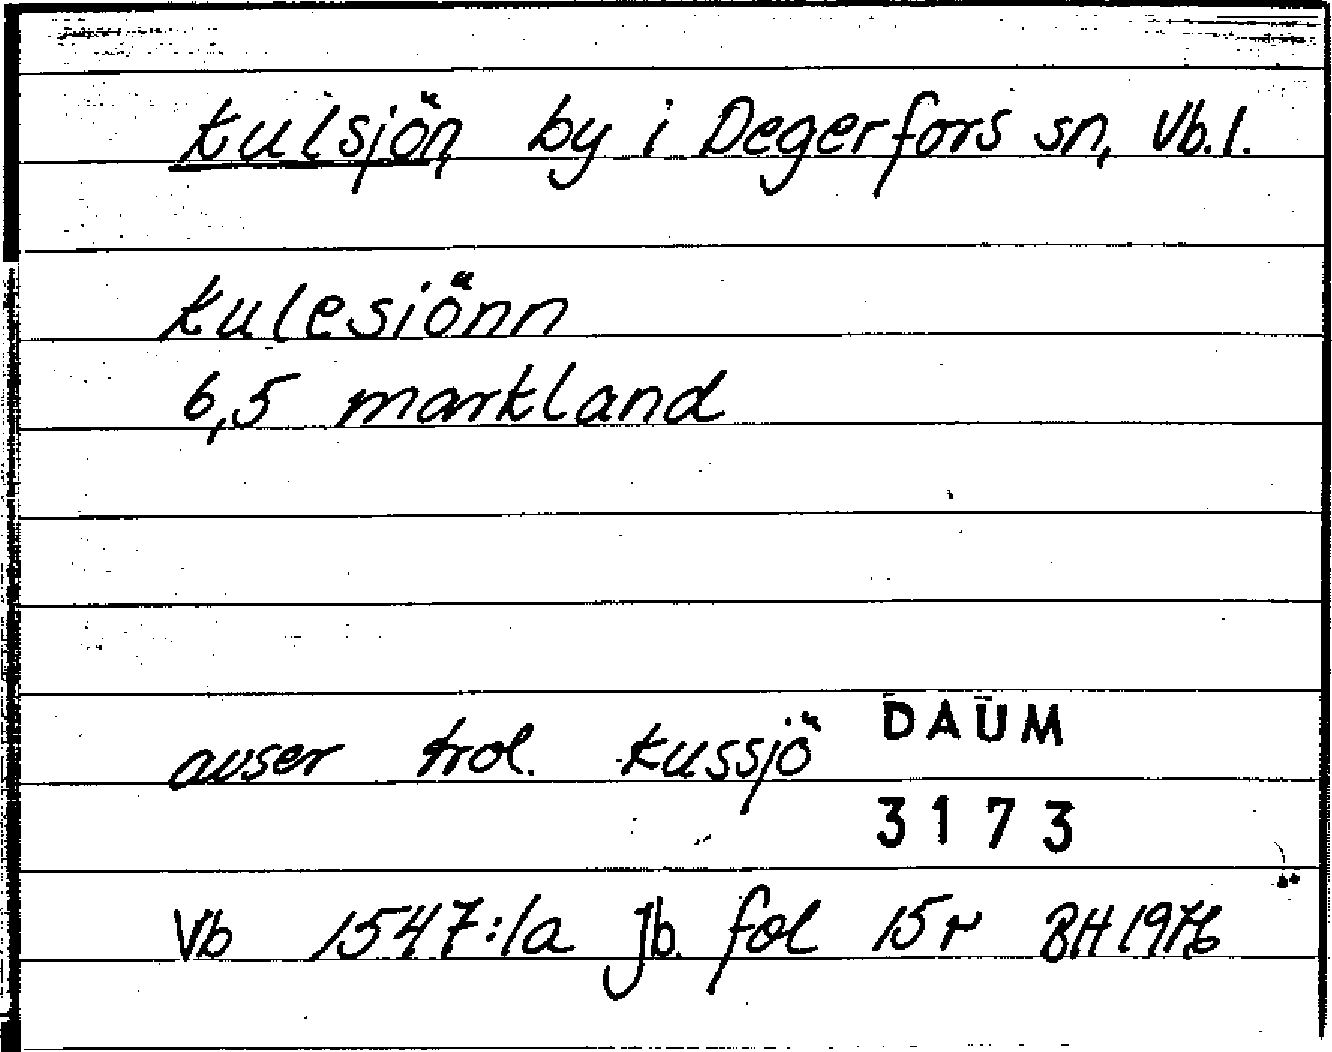 Kulsjön, by i Degerfors sn, Vb.l.
Kulesiönn
6,5 markland
avser trol. Kussjö DAUM
3173
Vb 1547:1a Jb. fol 15r BH 1976